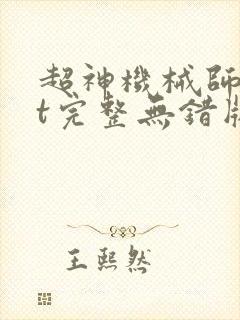 超神機械師
t完整無錯版
王熙然